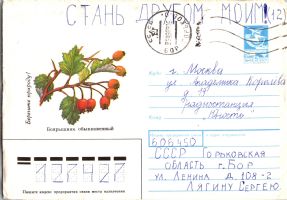 СТАНЬ ДРУГОМ МОИМ (12)
БОР
Берегите природу!
Боярышник обыкновенный
Куда г. Москва
ул Академика Королева
д 19
радиостанция
"Юность"
606450
СССР Горьковская
область г. Бор
ул. Ленина д. 108-2
Лягину Сергею.
127427
Пишите индекс предприятия связи места назначения